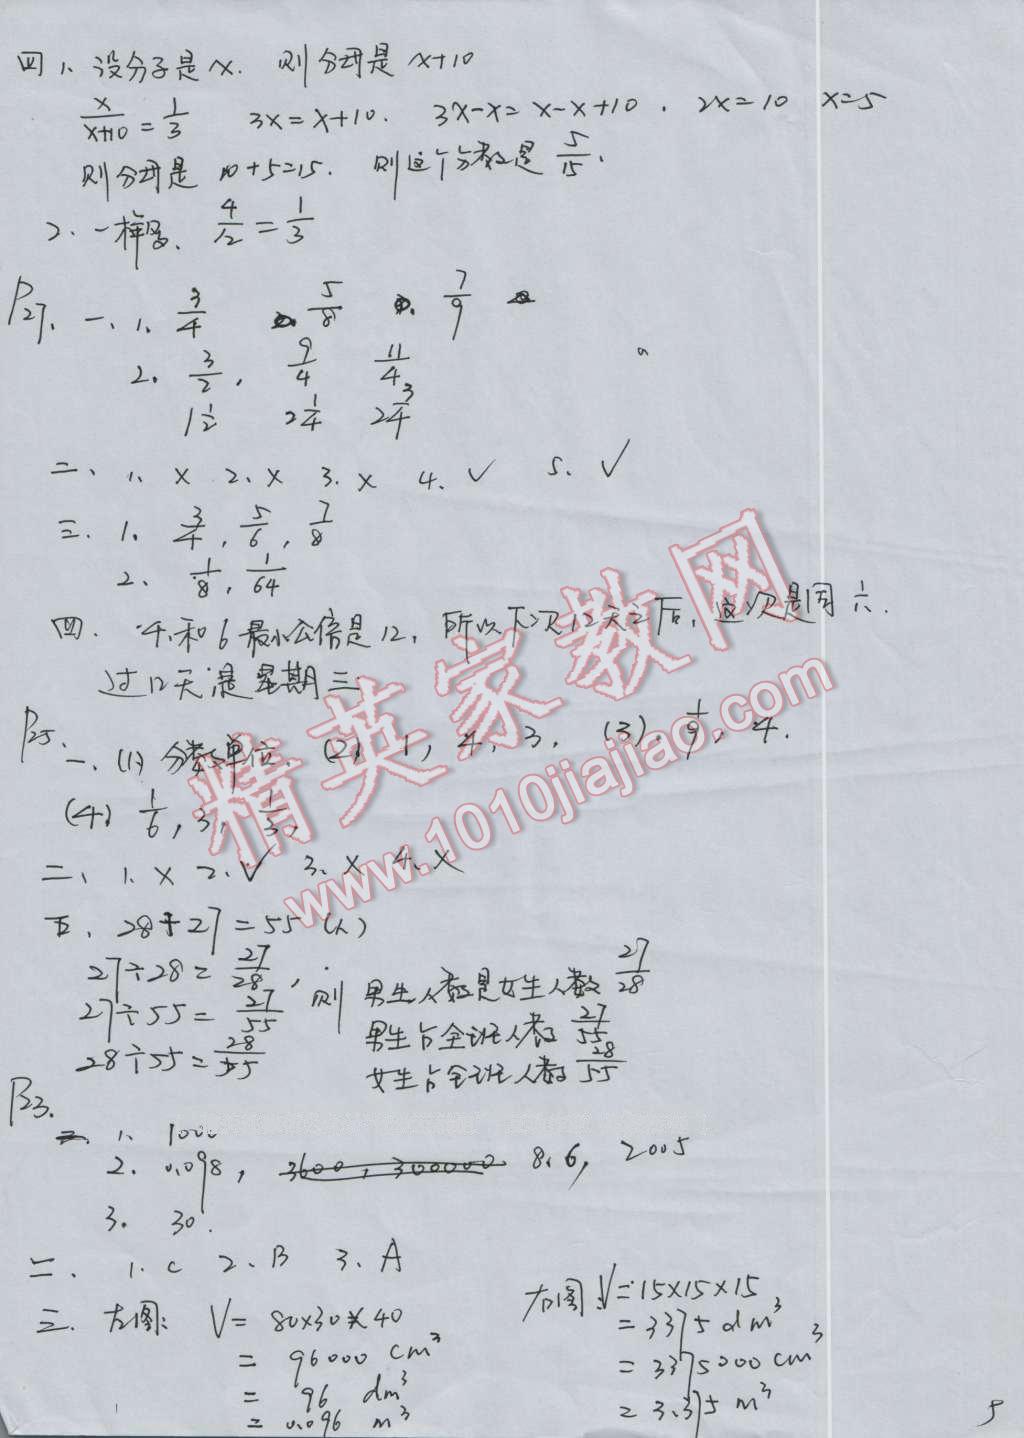 四 1、设分子是x. 则分母是 x+10
x/(x+10) = 1/3  3x=x+10.  3x-x=x-x+10.  2x=10  x=5
则分母是 10+5=15. 则这个分数是 5/15.
2. 一样多. 4/12 = 1/3
P27. 一、1. 3/4  5/8  7/9
2. 3/2, 9/4  11/4
1 1/2  2 1/4  2 3/4
二、1. × 2. × 3. × 4. √ 5. √
三. 1. 3/4, 5/6, 7/8
2. 1/8, 1/64
四. 4和6最小公倍是12, 所以下次12天之后, 这次是周六.
过12天是星期三
P25.
一、(1) 分数单位. (2) 1, 4, 3. (3) 1/9, 4.
(4) 1/6, 3, 1/3,
二、1. × 2. √ 3. × 4. ×
五、28+27=55(人)
27÷28= 27/28, 则 男生人数是女生人数 27/28
27÷55= 27/55 男生占全班人数 27/55
28÷55= 28/55 女生占全班人数 28/55
P23.
1. 1000
2. 0.098, 3600, 300000 8.6, 2005
3. 30.
二. 1. C 2. B 3. A
三. 左图: V= 80×30×40
= 96000 cm³
= 96 dm³
= 0.096 m³
右图: V=15×15×15
=3375 dm³
=3375000 cm³
=3.375 m³
5
精英家教网
www.1010jiajiao.com